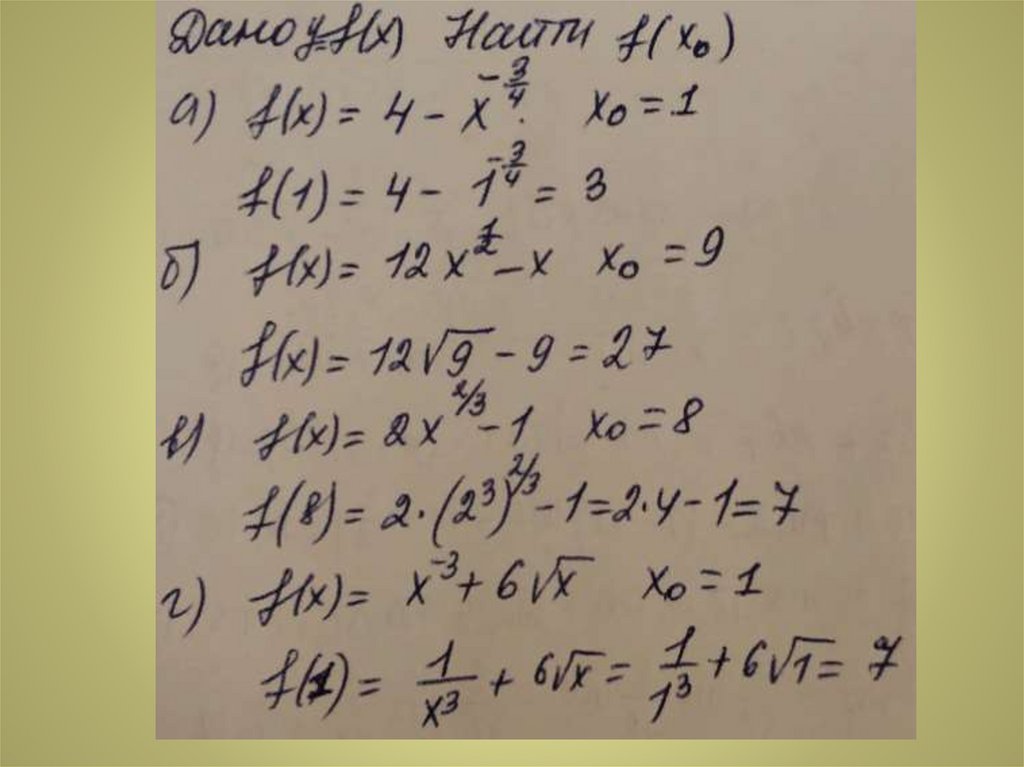 Дано y=f(x) Найти f(x₀)
а) f(x) = 4 - x^(-3/4) x₀ = 1
f(1) = 4 - 1^(-3/4) = 3
б) f(x) = 12x^(1/2) - x x₀ = 9
f(x) = 12√9 - 9 = 27
в) f(x) = 2x^(2/3) - 1 x₀ = 8
f(8) = 2·(2³)^(2/3) - 1 = 2·4 - 1 = 7
г) f(x) = x⁻³ + 6√x x₀ = 1
f(1) = 1/x³ + 6√x = 1/1³ + 6√1 = 7